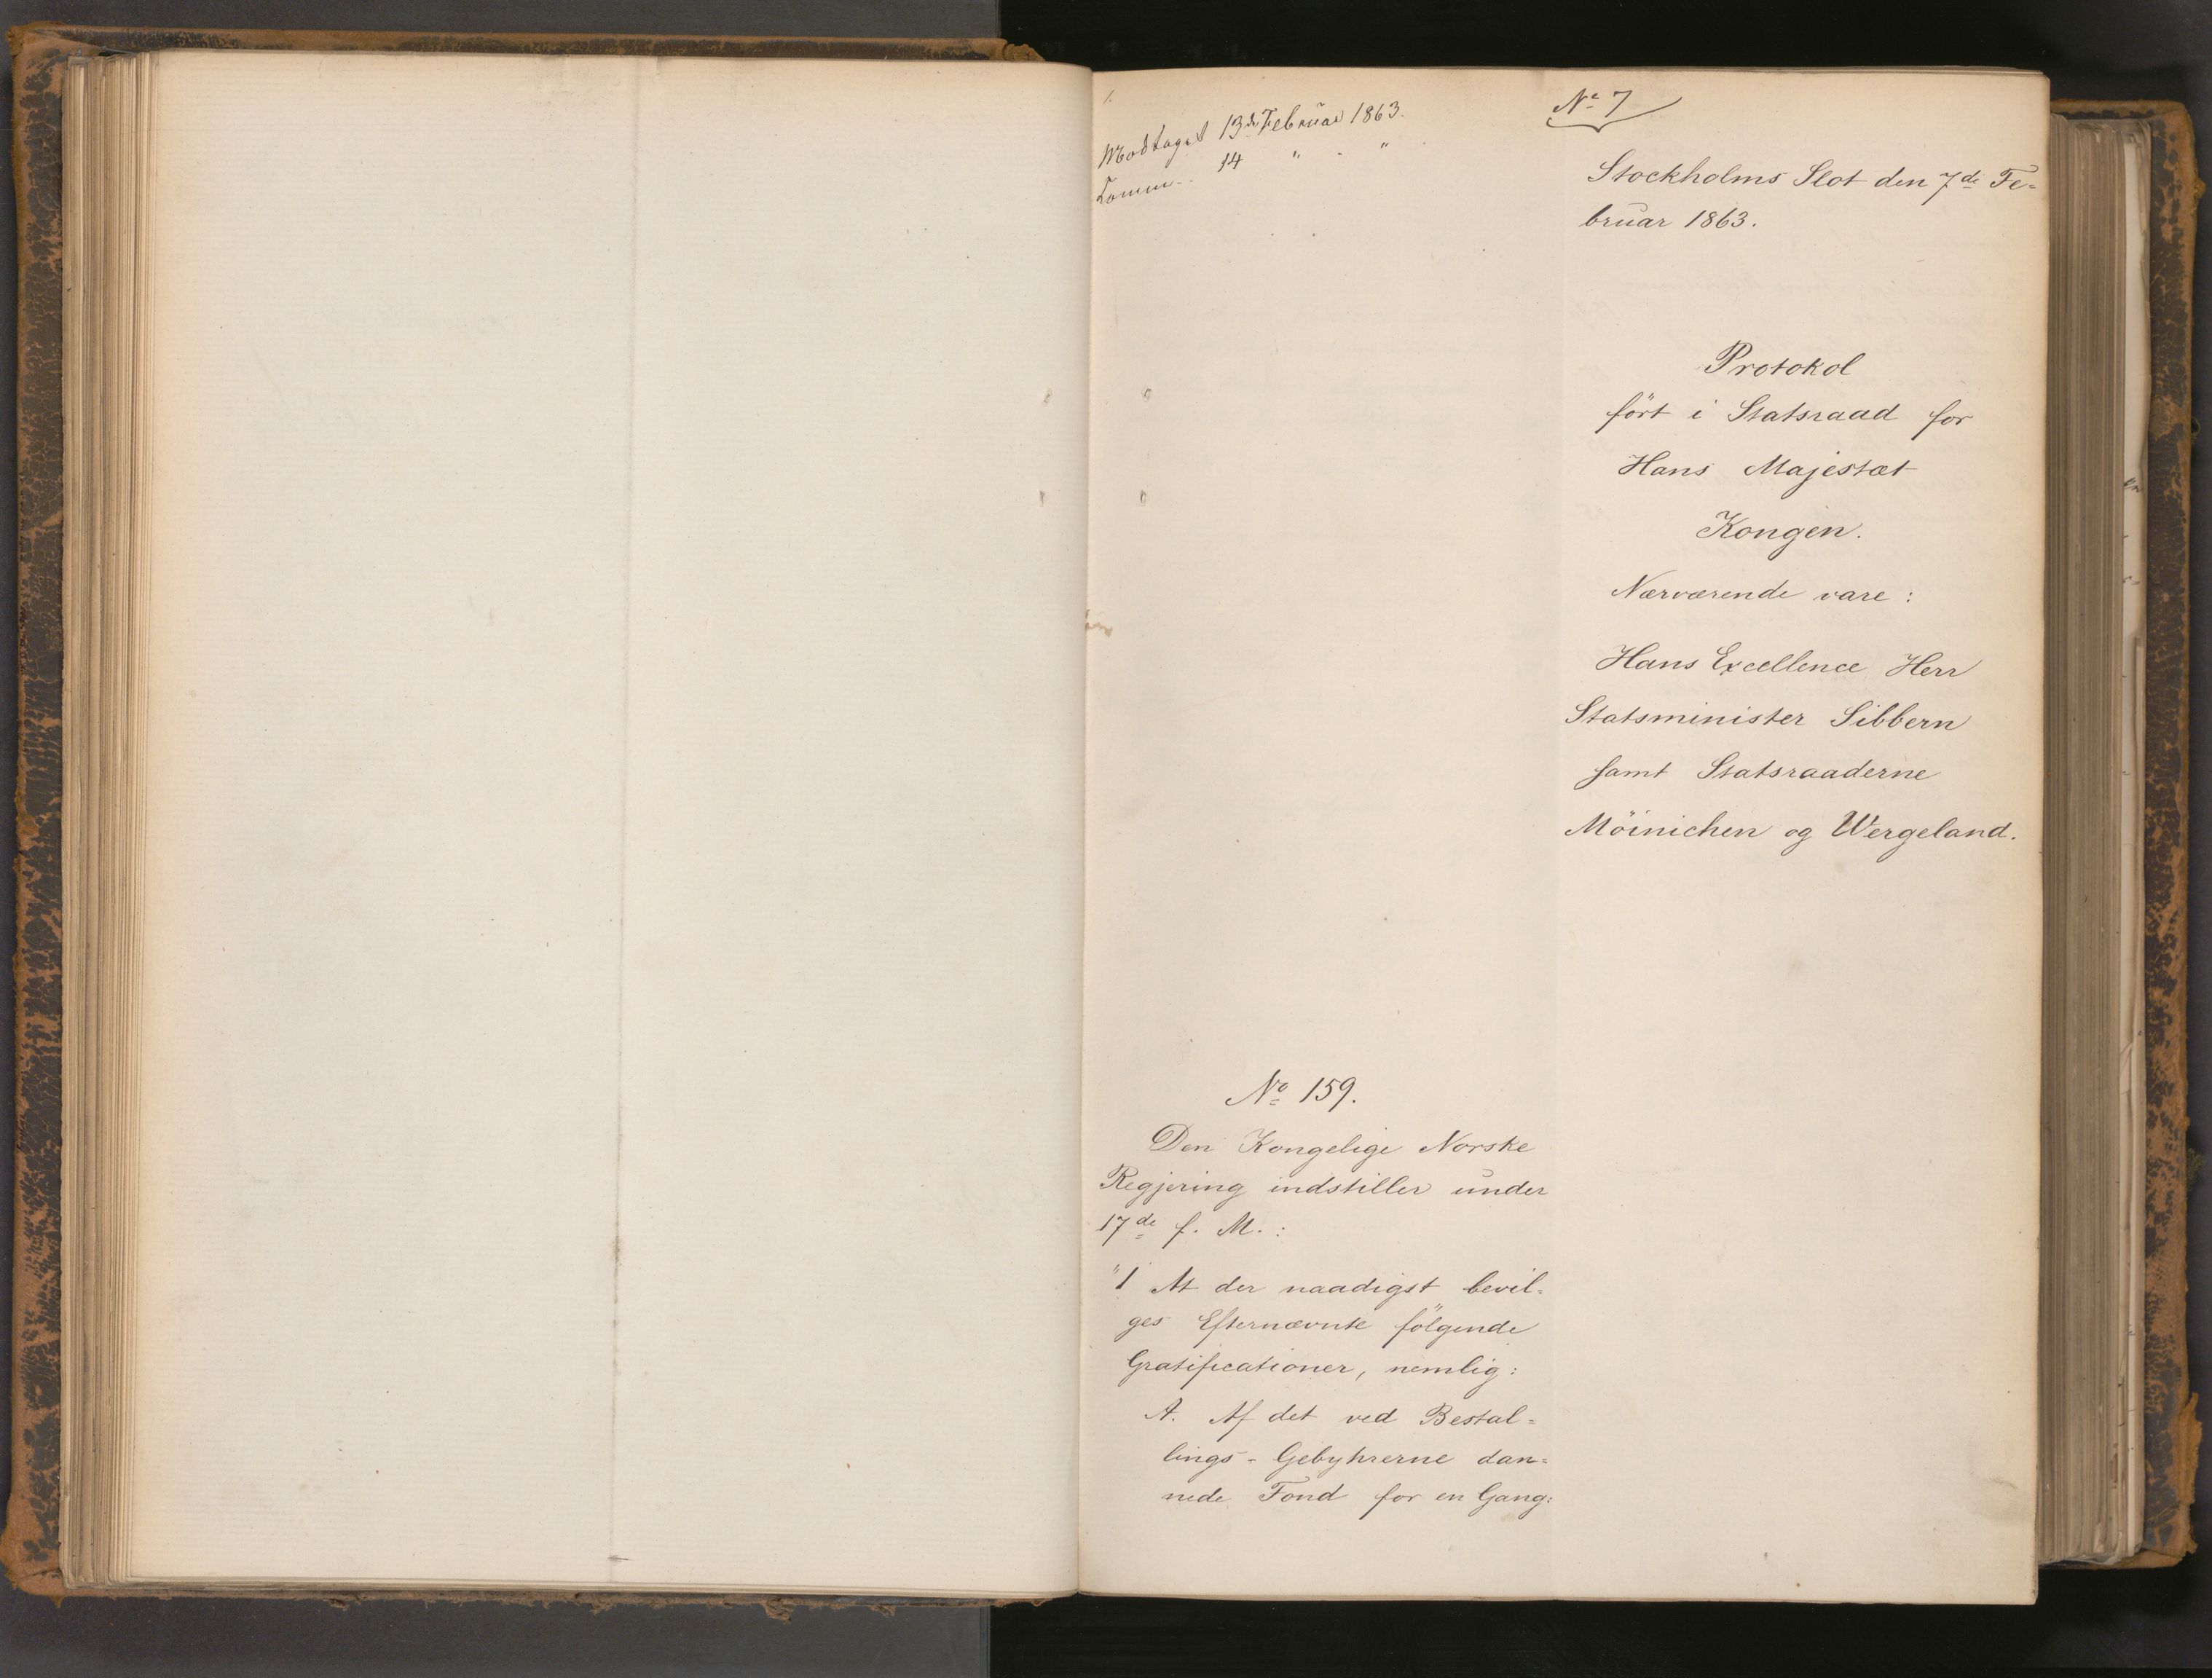 1.
Modtaget 13de Februar 1863.
Comm. 14 " - "
No 7
Stockholms Slot den 7de Fe-
bruar 1863.
Protokol
ført i Statsraad for
Hans Majestæt
Kongen.
Nærværende vare:
Hans Excellence Herr
Statsminister Sibbern
samt Statsraaderne
Möinichen og Wergeland.
No 159.
Den Kongelige Norske
Regjering indstiller under
17de f. M.:
"1 At der naadigst bevil-
ges Efternævnte følgende
Gratificationer, nemlig:
A. Af det ved Bestal-
lings-Gebyhrerne dan-
nede Fond for en Gang: